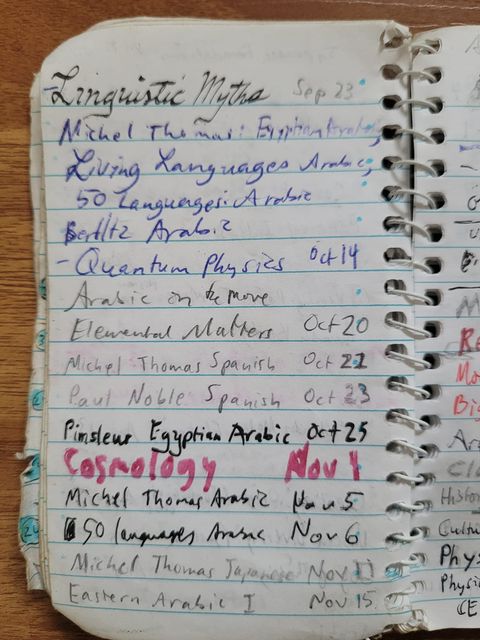 -Linguistic Myths Sep 23
Michel Thomas: Egyptian Arabic,
Living Languages Arabic,
50 Languages: Arabic
Berlitz Arabic
- Quantum Physics Oct 14
Arabic on the move
Elemental Matters Oct 20
Michel Thomas Spanish Oct 21
Paul Noble Spanish Oct 23
Pimsleur Egyptian Arabic Oct 25
Cosmology Nov 1
Michel Thomas Arabic Nov 5
50 languages Arabic Nov 6
Michel Thomas Japanese Nov
Eastern Arabic I Nov 15